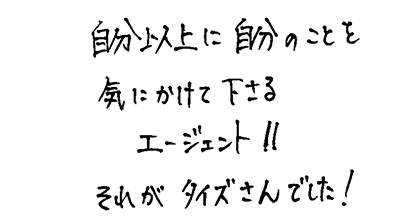 自分以上に自分のことを
気にかけて下さる
エージェント!!
それがタイズさんでした!